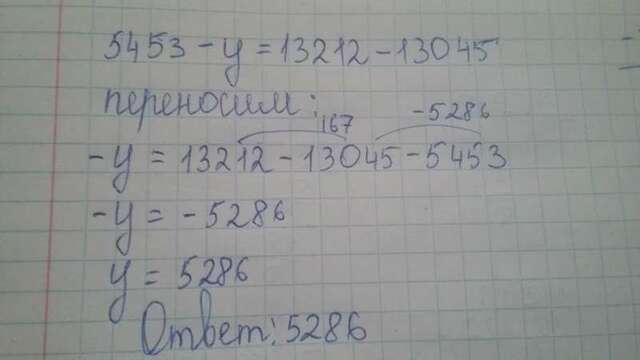 5453 - y = 13212 - 13045
переносим:
167 -5286
-y = 13212 - 13045 - 5453
-y = -5286
y = 5286
Ответ: 5286